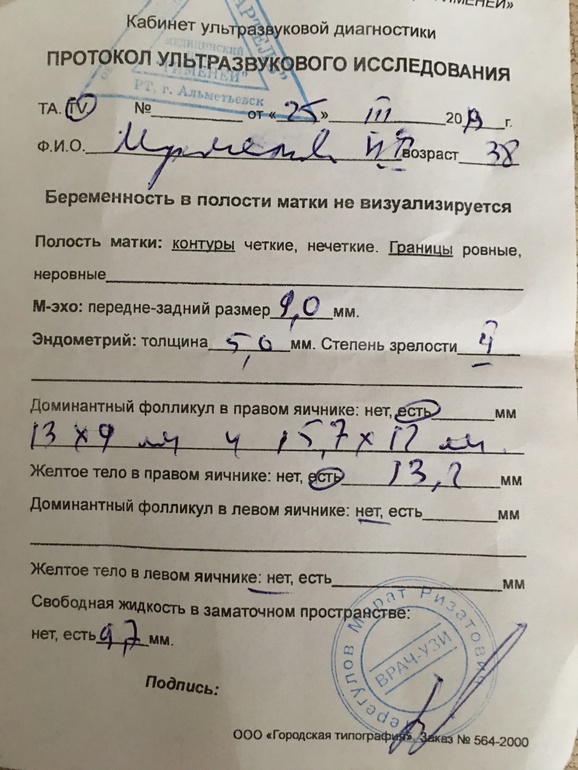 ИМЕНЕЙ»
Кабинет ультразвуковой диагностики
АРТЕЛЬ"
МЕДИЦИНСКИЙ
"ТИМЕНЕЙ"
РТ, г. Альметьевск
ПРОТОКОЛ УЛЬТРАЗВУКОВОГО ИССЛЕДОВАНИЯ
ТА. TV № от «25» III 20 г.
Ф.И.О. возраст 38
Беременность в полости матки не визуализируется
Полость матки: контуры четкие, нечеткие. Границы ровные,
неровные
М-эхо: передне-задний размер 9,0 мм.
Эндометрий: толщина 5,0 мм. Степень зрелости
Доминантный фолликул в правом яичнике: нет, есть мм
13 х 9 мм и 15,7 х 12 мм.
Желтое тело в правом яичнике: нет, есть 13,2 мм
Доминантный фолликул в левом яичнике: нет, есть мм
Желтое тело в левом яичнике: нет, есть мм
Свободная жидкость в заматочном пространстве:
нет, есть 9,7 мм.
Марат Ризатович
ВРАЧ-УЗИ
Подпись:
ООО «Городская типография», Заказ № 564-2000